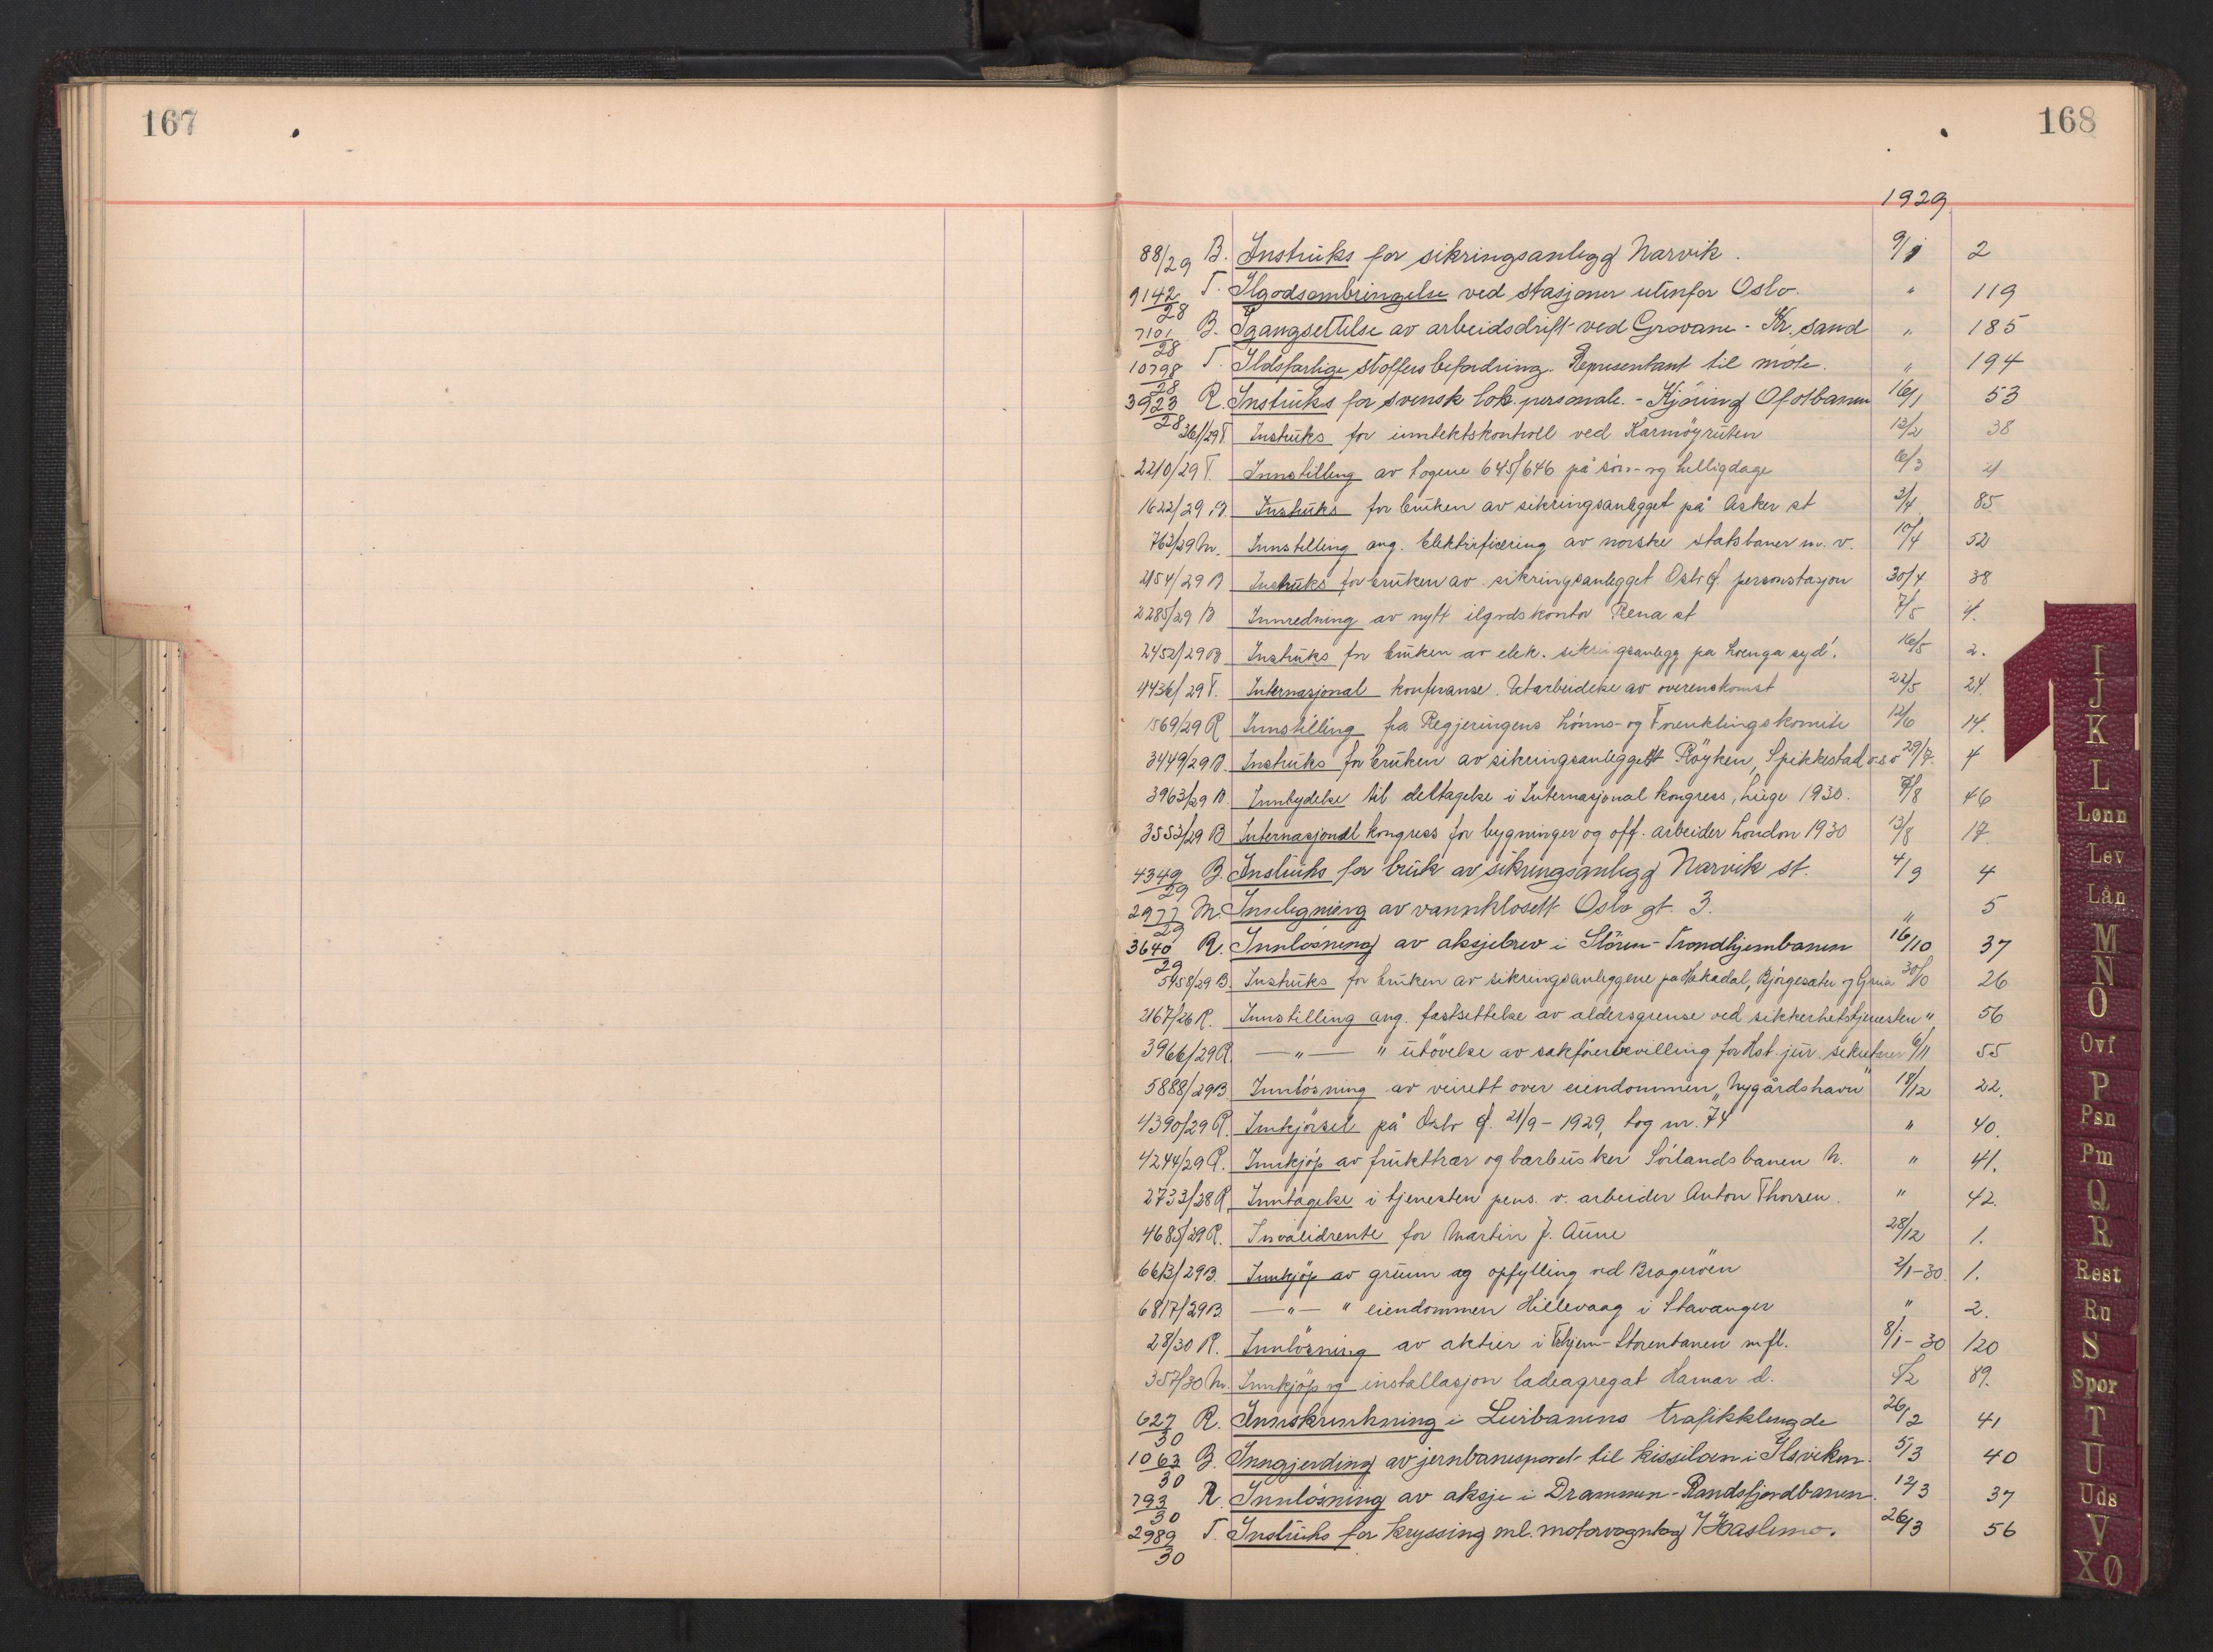 167
168
1929
88/29 B. Instruks for sikringsanlegg Narvik. 9/1 2
9142/28 T. Ilgodsombringelse ved stasjoner utenfor Oslo. " 119
7101/28 B. Igangsettelse av arbeidsdrift ved Grovane - Kr.sand " 185
10798/28 T. Ildsfarlige stoffers befordring. Representant til möte. " 194
3923/28 R. Instruks for svensk lok. personale. - Kjöring Ofotbanen 16/1 53
361/29 T. Instruks for inntektskontroll ved Karmöyruten 12/2 38
2210/29 T. Innstilling av togene 645/646 på sön- og helligdage 6/3 21
1622/29 B. Instruks for bruken av sikringsanlegget på Asker st 3/4 85
763/29 M. Innstilling ang. Elektrifisering av norske statsbaner m.v. 10/4 52
2154/29 B Instruks for bruken av sikringsanlegget Oslo Ø. personstasjon 30/4 38
2285/29 B Innredning av nytt ilgodskontor Rena st 7/5 4.
2452/29 B Instruks for bruken av elek. sikringsanlegg på Loenga syd. 16/5 2.
4436/29 T. Internasjonal konferanse. Utarbeidelse av overenskomst 22/5 24.
1569/29 R Innstilling fra Regjeringens Lönns- og Forenklingskomite 12/6 14.
3449/29 B. Instruks for bruken av sikringsanlegget Röyken, Spikkestad o s v 29/7. 4
3963/29 B. Innbydelse til deltagelse i Internasjonal kongress, Liege 1930. 7/8 46
3553/29 B Internasjonal kongress for bygninger og off. arbeider London 1930 13/8 17
4349/29 B. Instruks for bruk av sikringsanlegg Narvik st. 4/9 4
2977/29 M. Innlegning av vannklosett Oslo gt. 3. " 5
3640/29 R. Innlösning av aksjebrev i Stören-Trondhjembanen 16/10 37
5958/29 B. Instruks for bruken av sikringsanleggene på Hakadal, Bjørgeseter og Grua 30/10 26
2167/26 R. Innstilling ang. fastsettelse av aldersgrense ved sikkerhetstjenesten " 56
3966/29 R. —"— " utövelse av sakförerbevilling for Hst. jur. sekretærer 6/11 55
5888/29 B. Innlösning av veirett over eiendommen "Nygårdshavn" 18/12 22.
4390/29 R. Innkjörsel på Oslo Ø. 21/9 - 1929, tog nr. 74 " 40.
4244/29 R. Innkjöp av frukttrær og bærbusker Sörlandsbanen N. " 41.
2733/28 R. Inntagelse i tjenesten pens. v. arbeider Anton Thorsen. " 42.
4685/29 R. Invalidrente for Martin J. Aune 28/12 1.
6613/29 B. Innkjöp av grunn og opfylling ved Brageröen 2/1-30. 1.
6817/29 B. —"— " eiendommen Hillevaag i Stavanger " 2.
28/30 R. Innlösning av aktier i Thjem-Störenbanen m fl. 8/1-30 120
357/30 M. Innkjöp og installasjon ladeagregat Hamar d. 5/2 89.
627/30 R. Innskrenkning i Lierbanens trafikklengde 26/2 41
1063/30 B. Inngjerding av jernbanesporet til kissiloen i Ilsviken. 5/3 40
793/30 R. Innlösning av aksje i Drammen-Randsfjordbanen. 12/3 37
2989/30 T. Instruks for kryssing ml. motorvogntog i Haslemo. 26/3 56
I
J
K
L
Lønn
Lev
Lån
M
N
O
Ovf
P
Psn
Pm
Q
R
Rest
Ru
S
Spor
T
U
Uds
V
XØ